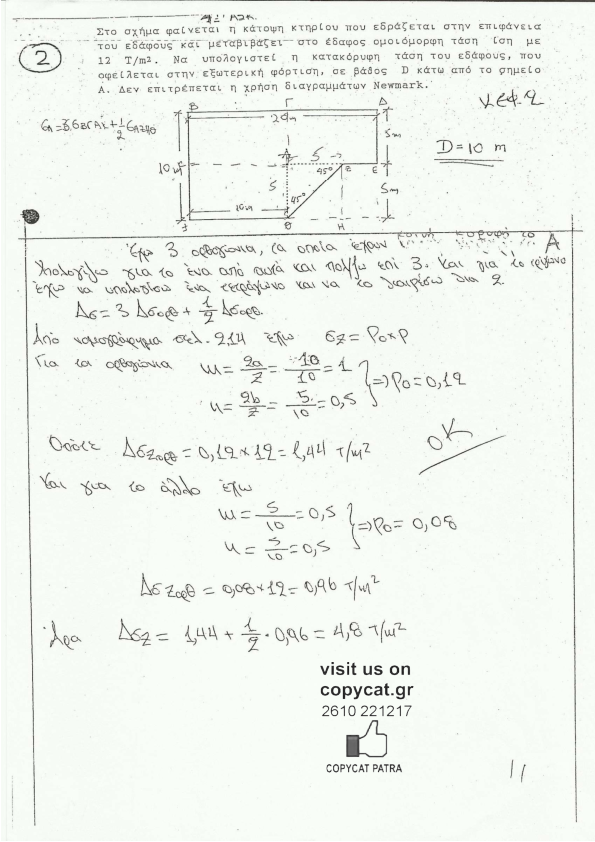 4η ΑΣΚ.
Στο σχήμα φαίνεται η κάτοψη κτηρίου που εδράζεται στην επιφάνεια
του εδάφους και μεταβιβάζει στο έδαφος ομοιόμορφη τάση ίση με
12 T/m². Να υπολογιστεί η κατακόρυφη τάση του εδάφους, που
οφείλεται στην εξωτερική φόρτιση, σε βάθος D κάτω από το σημείο
Α. Δεν επιτρέπεται η χρήση διαγραμμάτων Newmark.
2
ΚΕΦ. 2
Β Γ Δ
20m
5m
D = 10 m
10m
Α 5
45° Ζ Ε
5
5m
10m
45°
Θ Η
Έχω 3 ορθογώνια, τα οποία έχουν κοινή κορυφή το Α
Υπολογίζω για το ένα από αυτά και πολ/ζω επί 3. Και για το τρίγωνο
έχω να υπολογίσω ένα τετράγωνο και να το διαιρέσω δια 2
Δσ = 3 Δσορθ + 1/2 Δσορθ.
Από νομογράφημα σελ. 2,14 έχω σz = Po×p
Για τα ορθογώνια m = 2a/z = 10/10 = 1
n = 2b/z = 5/10 = 0,5 } ⇒ Po = 0,12
Οπότε Δσzορθ = 0,12 × 12 = 1,44 T/m²
OK
Και για το άλλο έχω
m = 5/10 = 0,5
n = 5/10 = 0,5 } ⇒ Po = 0,08
Δσzορθ = 0,08×12 = 0,96 T/m²
Άρα Δσz = 1,44 + 1/2 · 0,96 = 4,8 T/m²
visit us on
copycat.gr
2610 221217
COPYCAT PATRA
11